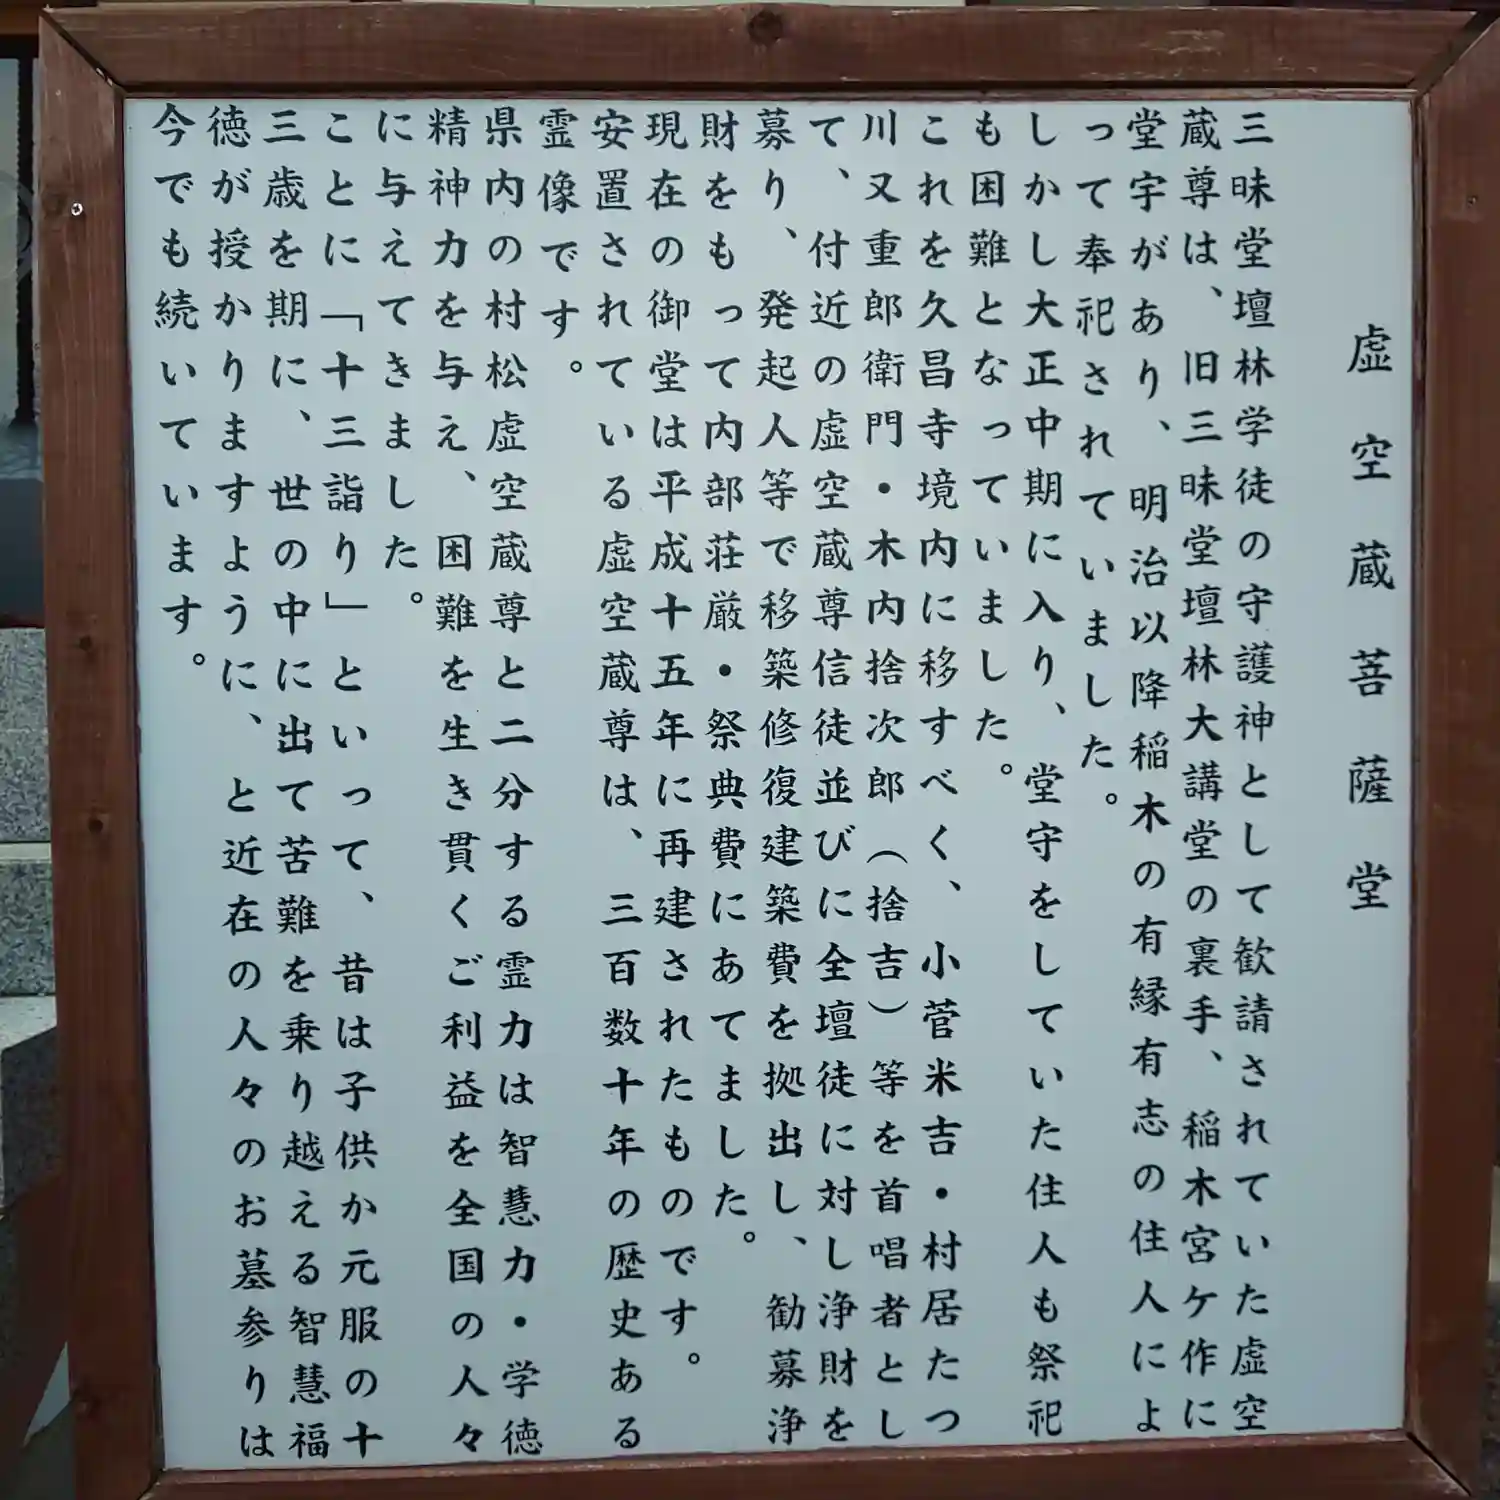 虚空蔵菩薩堂
三昧堂壇林学徒の守護神として歓請されていた虚空
蔵尊は、旧三昧堂壇林大講堂の裏手、稲木宮ケ作に
堂宇があり、明治以降稲木の有縁有志の住人によ
って奉祀されていました。
しかし大正中期に入り、堂守をしていた住人も祭祀
も困難となっていました。
これを久昌寺境内に移すべく、小菅米吉・村居たつ
川又重郎衛門・木内捨次郎（捨吉）等を首唱者とし
て、付近の虚空蔵尊信徒並びに全壇徒に対し浄財を
募り、発起人等で移築修復建築費を拠出し、勧募浄
財をもって内部荘厳・祭典費にあてました。
現在の御堂は平成十五年に再建されたものです。
安置されている虚空蔵尊は、三百数十年の歴史ある
霊像です。
県内の村松虚空蔵尊と二分する霊力は智慧力・学徳
精神力を与え、困難を生き貫くご利益を全国の人々
に与えてきました。
ことに「十三詣り」といって、昔は子供か元服の十
三歳を期に、世の中に出て苦難を乗り越える智慧福
徳が授かりますように、と近在の人々のお墓参りは
今でも続いています。